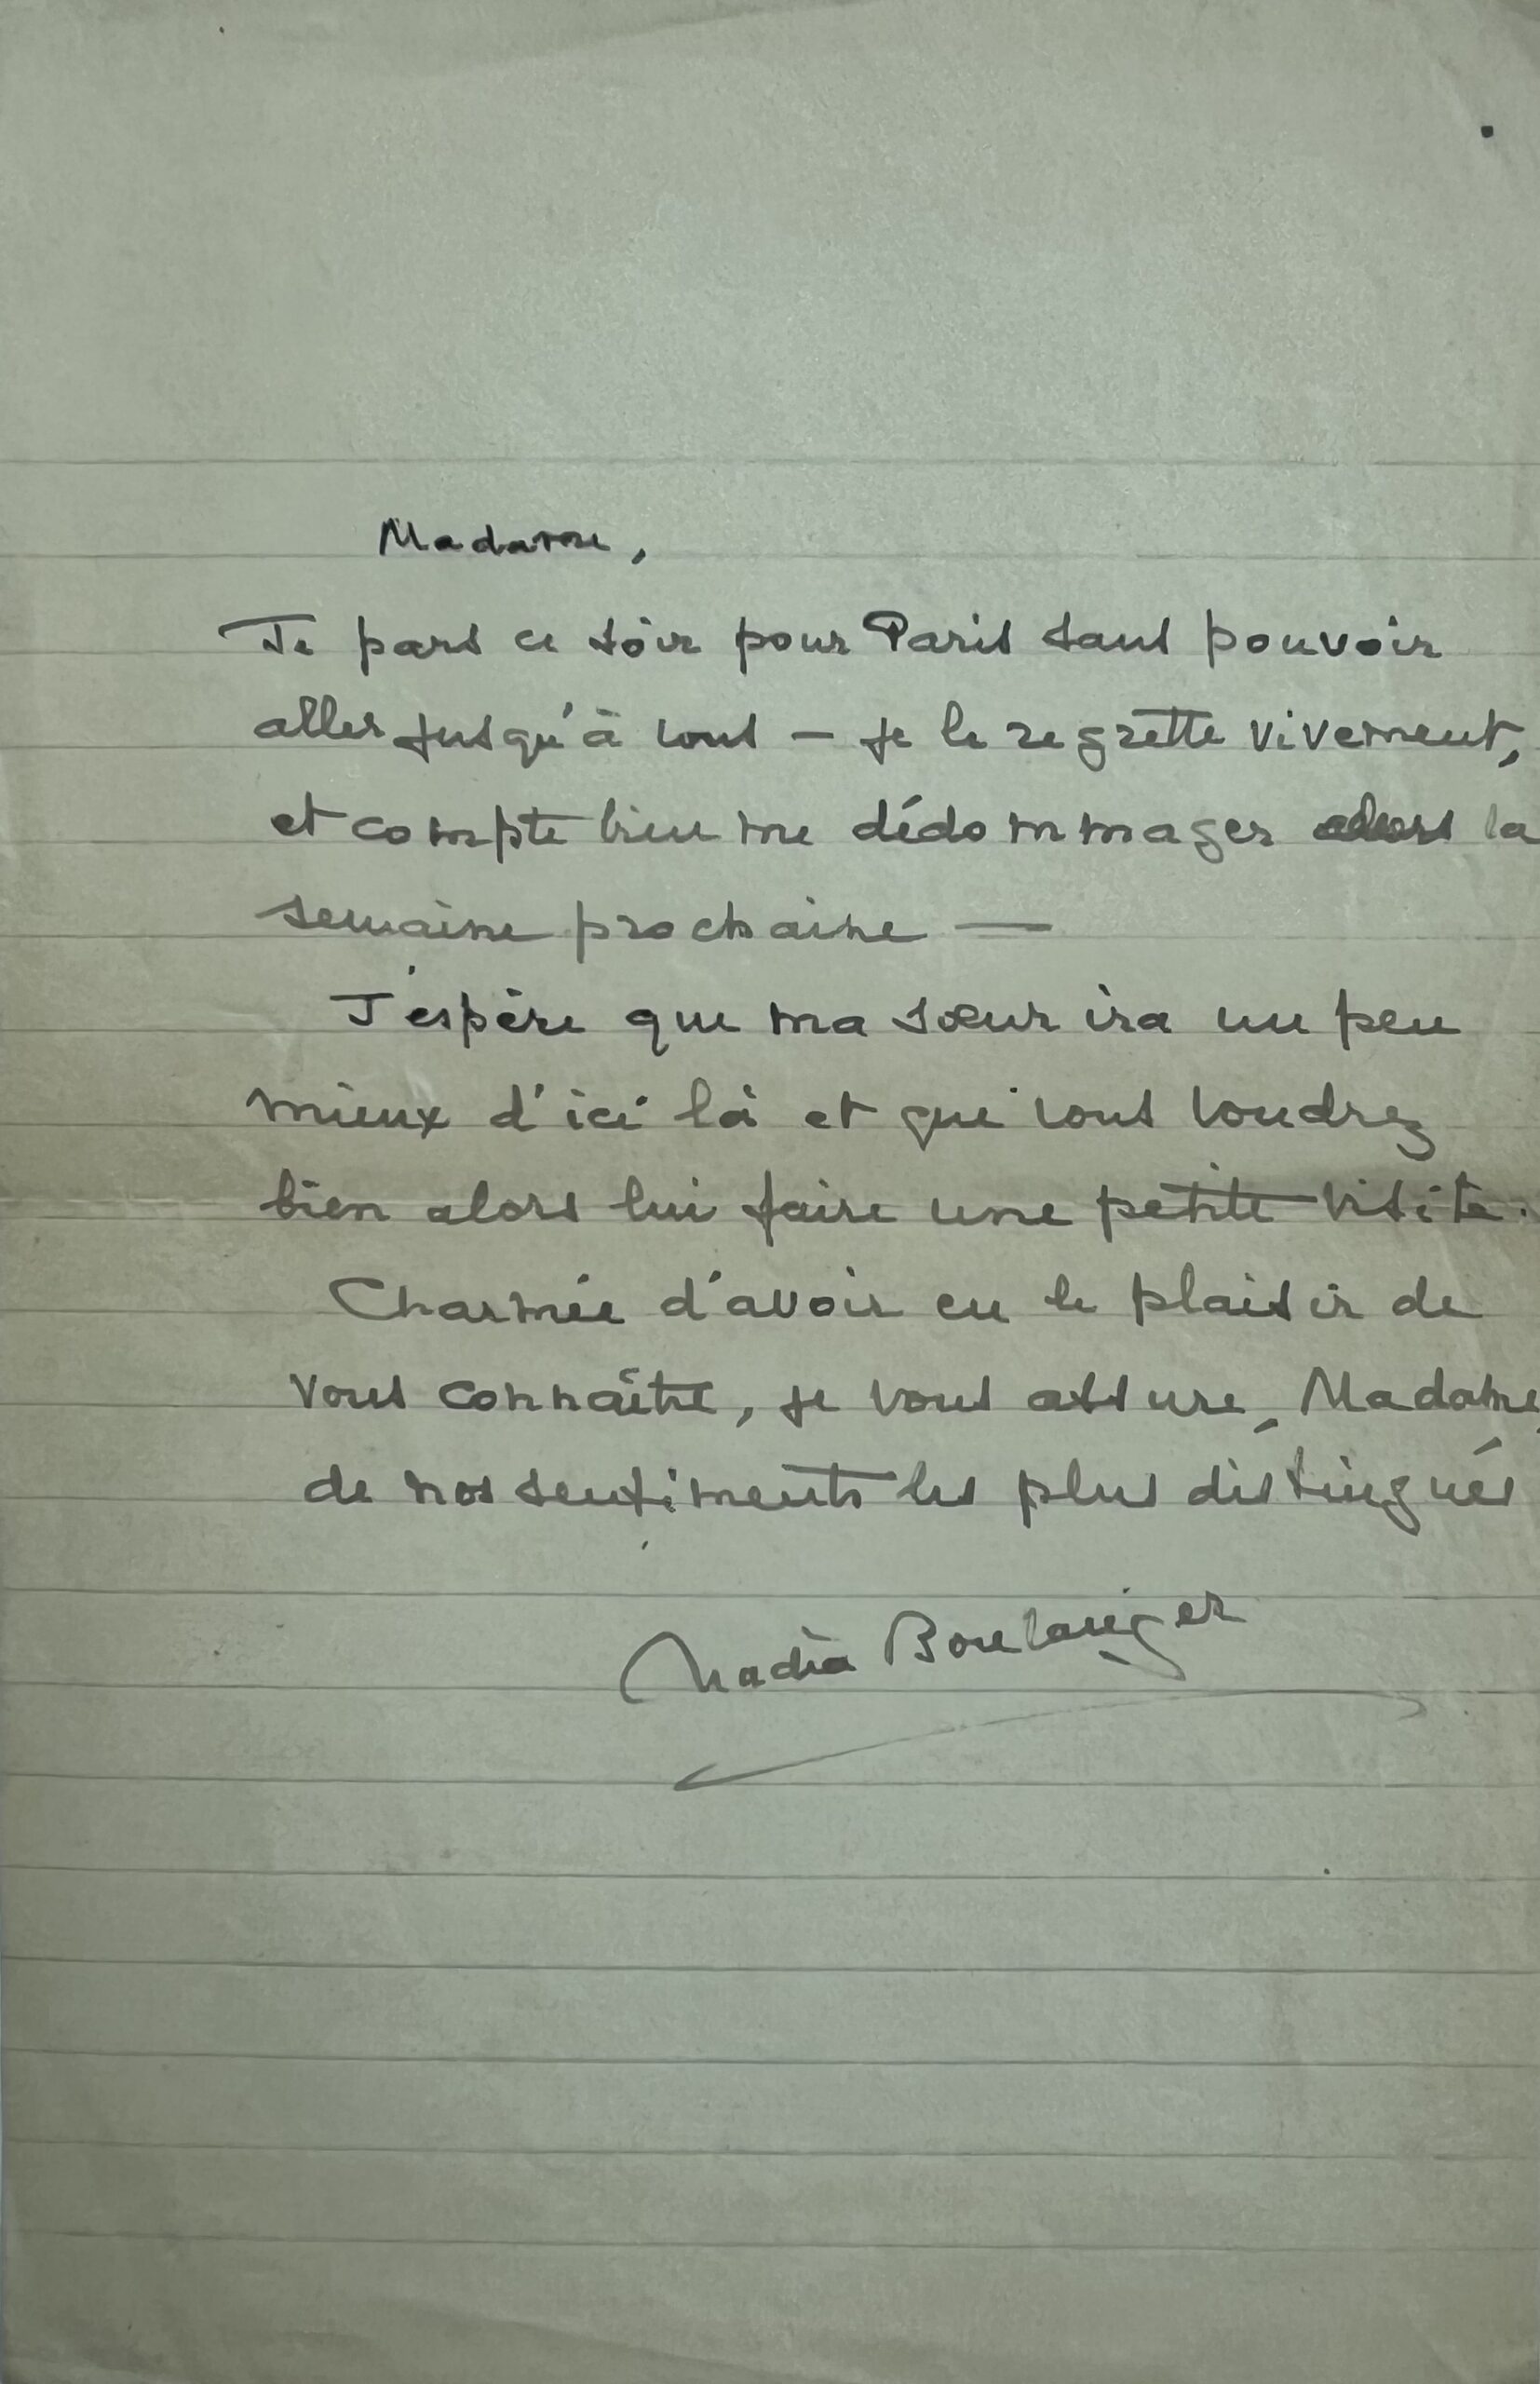 Madame,
Je pars ce soir pour Paris sans pouvoir
aller jusqu'à vous – je le regrette vivement,
et compte bien me dédommager alors la
semaine prochaine —
J'espère que ma sœur ira un peu
mieux d'ici là et que vous voudrez
bien alors lui faire une petite visite.
Charmée d'avoir eu le plaisir de
vous connaître, je vous assure, Madame,
de nos sentiments les plus distingués
Nadia Boulanger